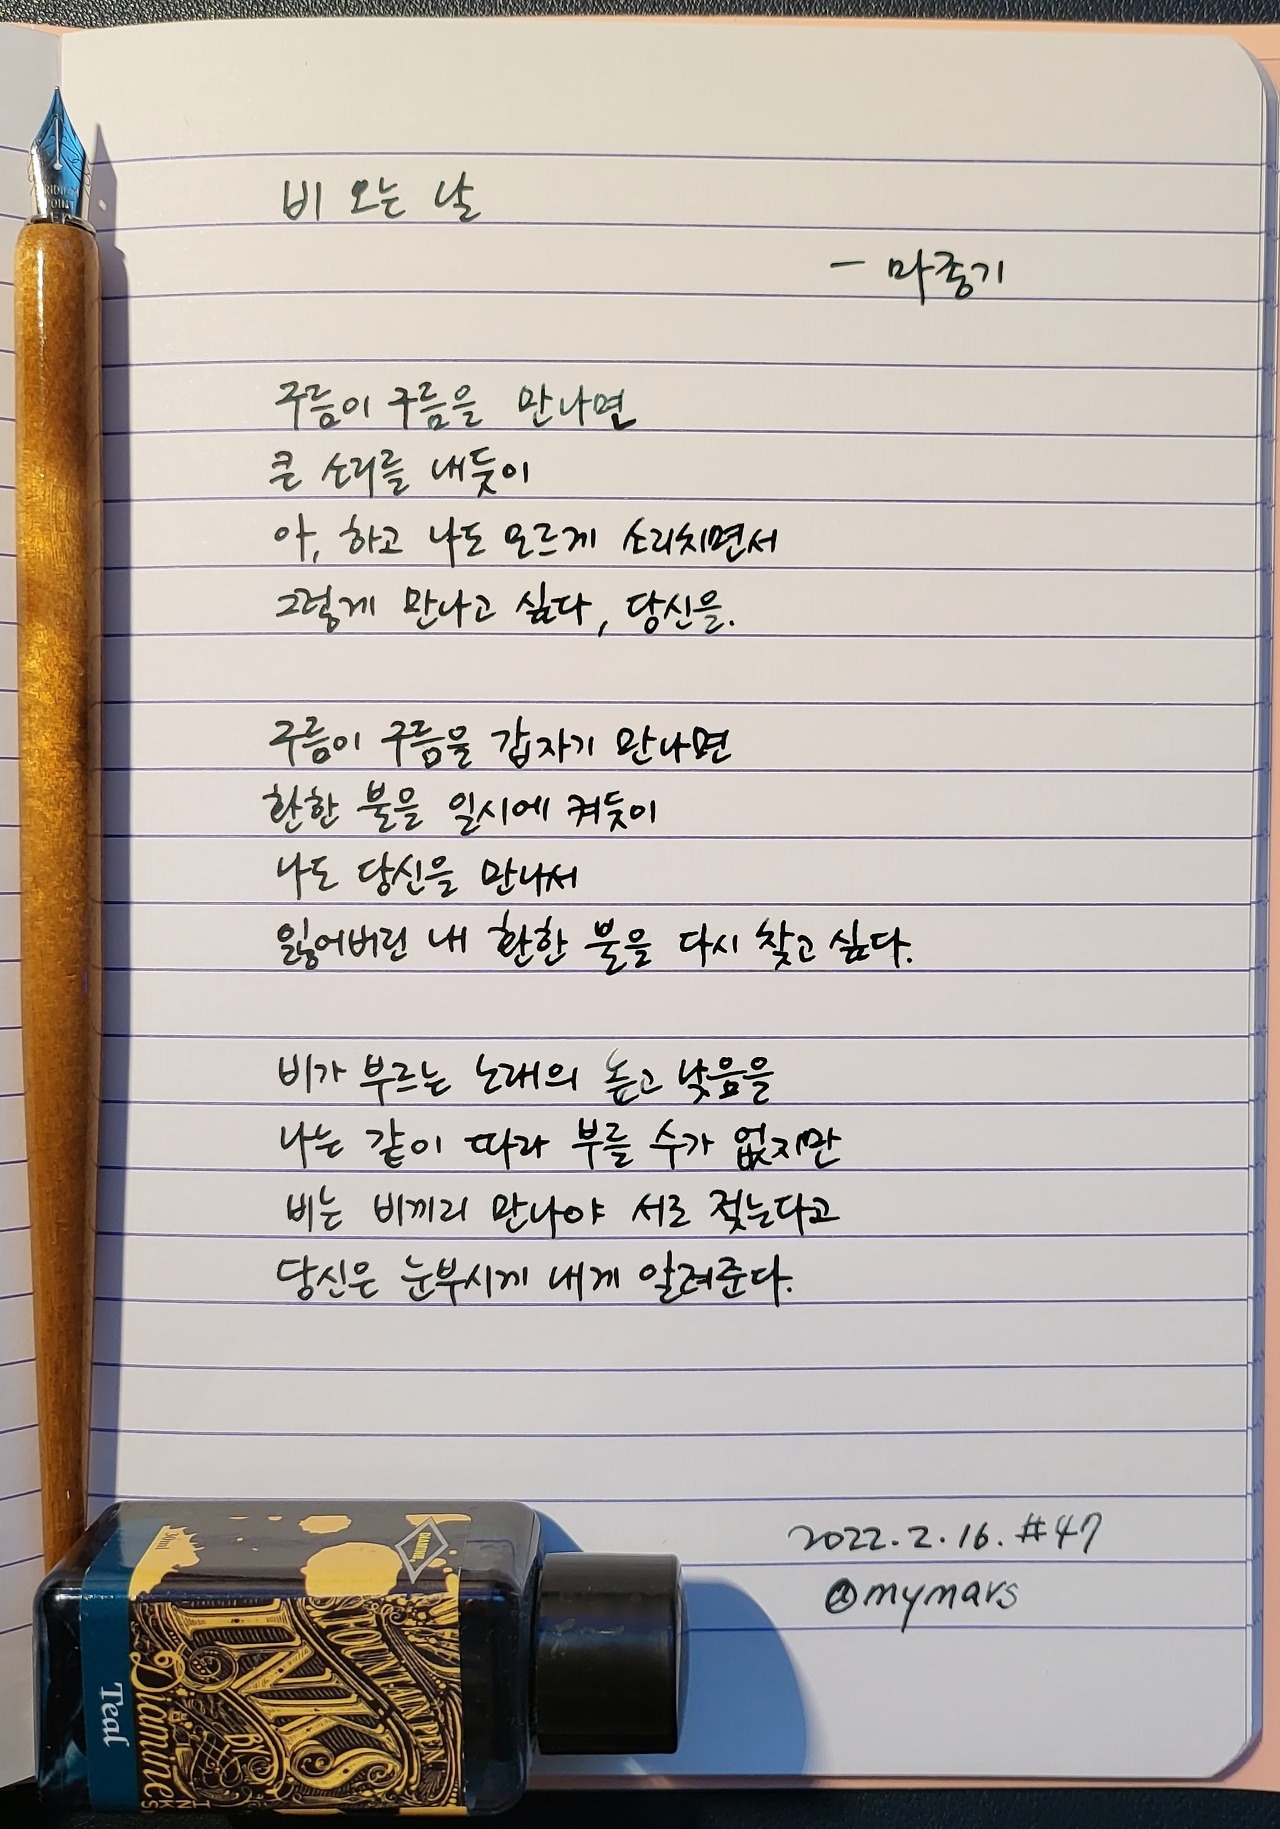 비 오는 날
- 마종기
구름이 구름을 만나면
큰 소리를 내듯이
아, 하고 나도 모르게 소리치면서
그렇게 만나고 싶다, 당신을.
구름이 구름을 갑자기 만나면
환한 불을 일시에 켜듯이
나도 당신을 만나서
잃어버린 내 환한 불을 다시 찾고 싶다.
비가 부르는 노래의 높고 낮음을
나는 같이 따라 부를 수가 없지만
비는 비끼리 만나야 서로 젖는다고
당신은 눈부시게 내게 알려준다.
2022.2.16. #47
@mymars
IRIDIUM
POINT
30ml
DIAMINE
FOUNTAIN PEN
INKS
BY
Diamine
Teal